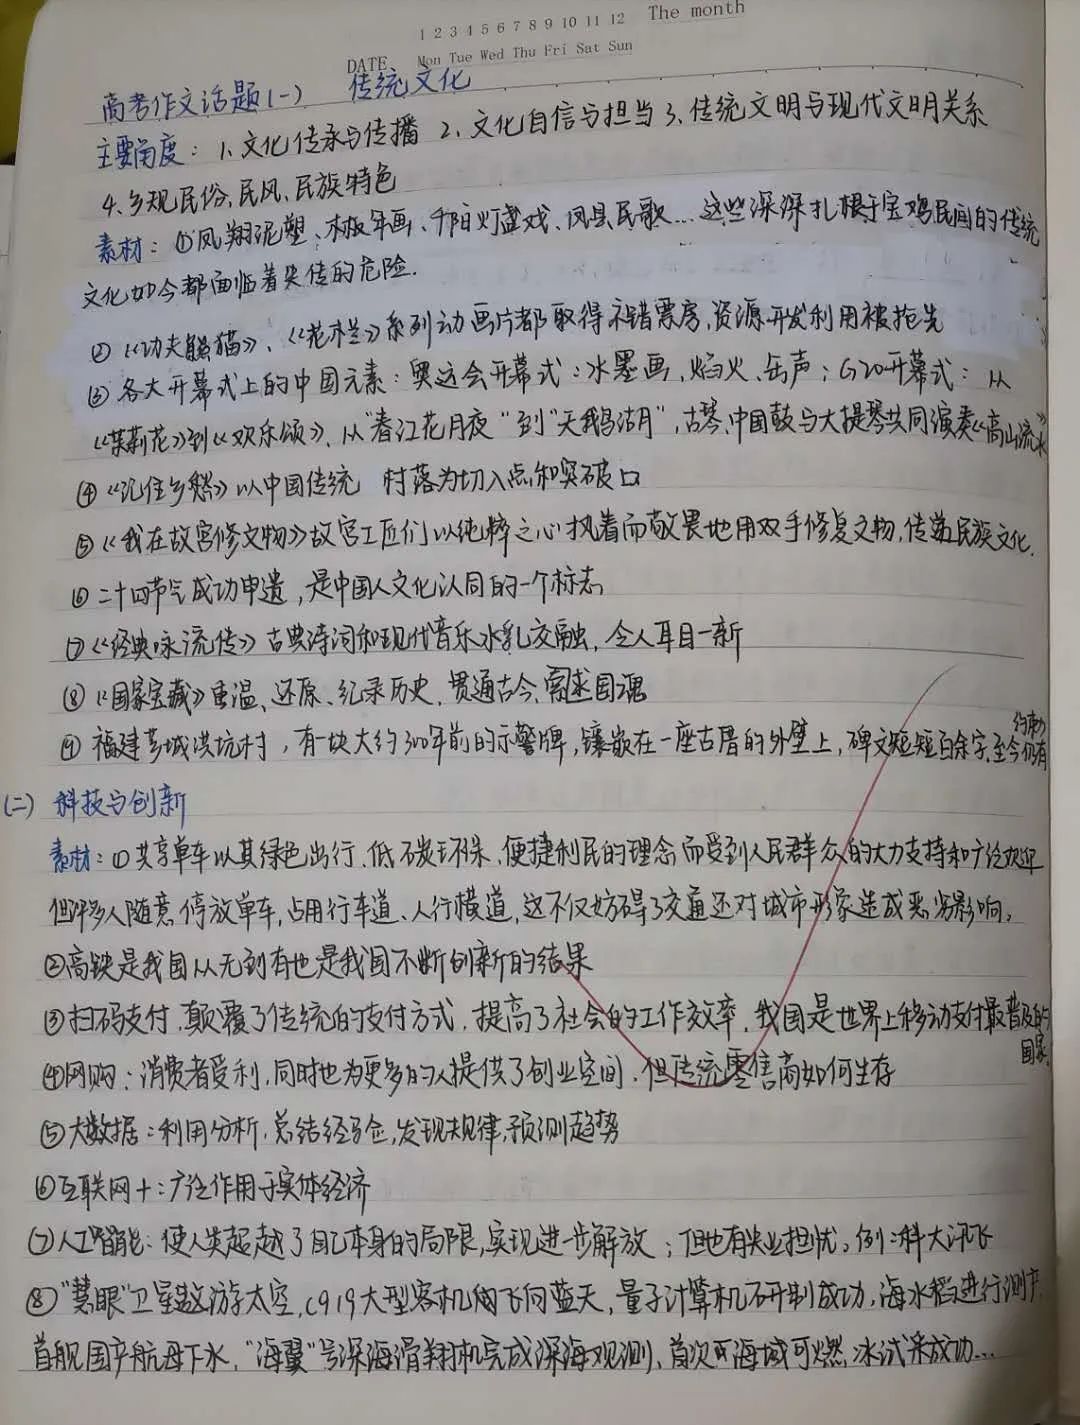 1 2 3 4 5 6 7 8 9 10 11 12 The month
DATE Mon Tue Wed Thu Fri Sat Sun
高考作文话题(一) 传统文化
主要角度：1、文化传承与传播 2、文化自信与担当 3、传统文明与现代文明关系
4、乡规民俗、民风、民族特色
素材：①凤翔泥塑、木板年画、千阳灯盏戏、凤县民歌…这些深深扎根于宝鸡民间的传统
文化如今都面临着失传的危险.
②《功夫熊猫》、《花木兰》系列动画片都取得不错票房,资源开发利用被抢先
③各大开幕式上的中国元素：奥运会开幕式：水墨画、焰火、缶声；G20开幕式：从
《茉莉花》到《欢乐颂》、从"春江花月夜"到"天鹅湖月",古琴、中国鼓与大提琴共同演奏《高山流水》
④《记住乡愁》以中国传统 村落为切入点和突破口
⑤《我在故宫修文物》故宫工匠们以纯粹之心执着而敬畏地用双手修复文物,传递民族文化.
⑥二十四节气成功申遗,是中国人文化认同的一个标志
⑦《经典咏流传》古典诗词和现代音乐水乳交融,令人耳目一新
⑧《国家宝藏》重温、还原、纪录历史,贯通古今,索逑国魂
⑨福建 城洪坑村,有一块大约300年前的示警牌,镶嵌在一座古厝的外壁上,碑文短短百余字,至今仍有
约束力
(二) 科技与创新
素材：①共享单车以其绿色出行、低碳环保、便捷利民的理念而受到人民群众的大力支持和广泛欢迎
但许多人随意停放单车,占用行车道、人行横道,这不仅妨碍了交通还对城市形象造成恶劣影响。
②高铁是我国从无到有也是我国不断创新的结果
③扫码支付,颠覆了传统的支付方式,提高了社会的工作效率,我国是世界上移动支付最普及的
国家.
④网购：消费者受利,同时也为更多的人提供了创业空间,但传统零售商如何生存
⑤大数据：利用分析,总结经验,发现规律,预测趋势
⑥互联网+：广泛作用于实体经济
⑦人工智能：使人类超越了自己本身的局限,实现进一步解放；但也有失业担忧。例：科大讯飞
⑧"慧眼"卫星遨游太空,C919大型客机翱飞向蓝天,量子计算机研制成功,海水稻进行测产,
首艘国产航母下水,"海翼"号深海滑翔机完成深海观测,首次 海域可燃冰试采成功…